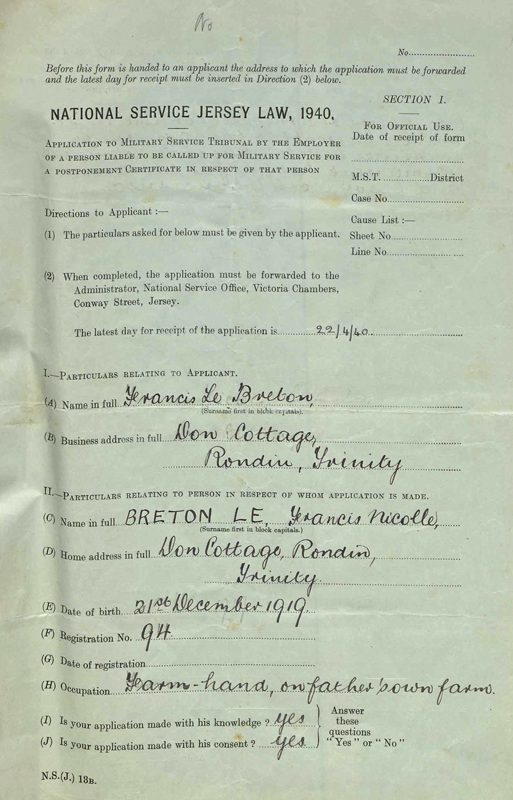 No
No.
Before this form is handed to an applicant the address to which the application must be forwarded
and the latest day for receipt must be inserted in Direction (2) below.
SECTION I.
NATIONAL SERVICE JERSEY LAW, 1940.
FOR OFFICIAL USE.
Date of receipt of form
APPLICATION TO MILITARY SERVICE TRIBUNAL BY THE EMPLOYER
OF A PERSON LIABLE TO BE CALLED UP FOR MILITARY SERVICE FOR
A POSTPONEMENT CERTIFICATE IN RESPECT OF THAT PERSON
M.S.T. District
Case No.
Directions to Applicant :—
Cause List :—
(1) The particulars asked for below must be given by the applicant.
Sheet No.
Line No.
(2) When completed, the application must be forwarded to the
Administrator, National Service Office, Victoria Chambers,
Conway Street, Jersey.
The latest day for receipt of the application is 22/4/40
I.—PARTICULARS RELATING TO APPLICANT.
(A) Name in full Francis Le Breton,
(Surname first in block capitals).
(B) Business address in full Don Cottage,
Rondin, Trinity
II.—PARTICULARS RELATING TO PERSON IN RESPECT OF WHOM APPLICATION IS MADE.
(C) Name in full BRETON LE, Francis Nicolle,
(Surname first in block capitals.)
(D) Home address in full Don Cottage, Rondin,
Trinity.
(E) Date of birth 21st December 1919.
(F) Registration No. 94
(G) Date of registration
(H) Occupation Farm-hand, on father's own farm.
(I) Is your application made with his knowledge ? yes
(J) Is your application made with his consent ? yes
Answer
these
questions
"Yes" or "No"
N.S.(J.) 13B.